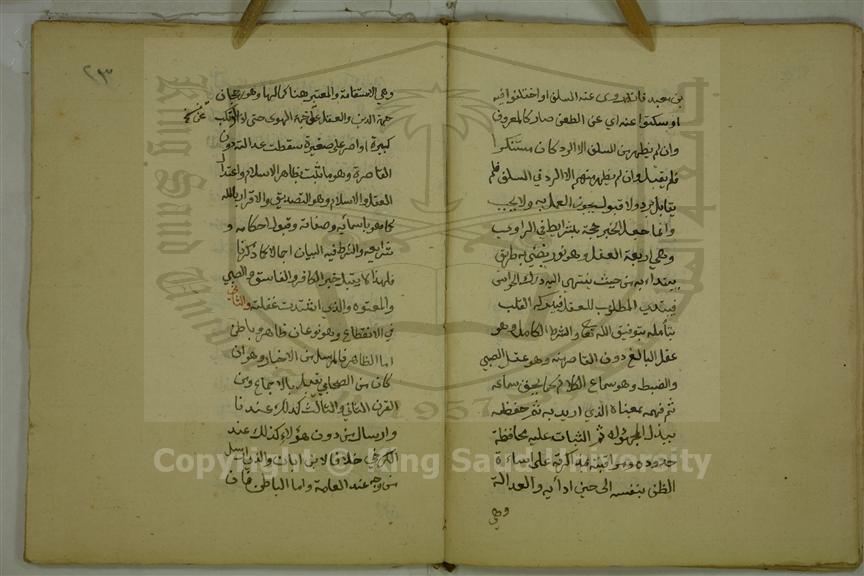 بن معبد فان روى عنه السلف او اختلفوا فيه
او سكتوا عنه اي عن الطعن صار كالمعروف
وان لم يظهر من السلف الا الرد كان مستنكرا
فلا يقبل وان لم يظهر منهم الا الرد في السلف فلم
يقابل برد ولا قبول يجوز العمل به ولا يجب
وانما جعل الخبر حجة بشرائط في الراوي
وهي اربعة العقل وهو نور يضئ به طريق
يبتداء به من حيث ينتهي اليه درك الحواس
فيبتدى المطلوب للعقل فيدركه القلب
بتأمله بتوفيق الله تعالى والشرط الكامل وهو
عقل البالغ دون القاصر منه وهو عقل الصبي
والضبط وهو سماع الكلام كما يحق سماعه
ثم فهمه بمعناه الذي اريد به ثم حفظه
ببذل المجهود له ثم الثبات عليه محافظة
حدوده ومراقبته بمذاكرته على اساءة
الظن بنفسه الى حين ادائه والعدالة
وهي
٢٣
وهي الاستقامة والمعتبر هنا كمالها وهو رجحان
جهة الدين والعقل على جهة الهوى حتى اذا ارتكب
كبيرة او اصر على صغيرة سقطت عدالته دون
القاصرة وهو ما ثبت بظاهر الاسلام واعتدال
العقل والاسلام وهو التصديق والاقرار بالله
كما هو باسمائه وصفاته وقبول احكامه و
شرايعه والشرط فيه البيان اجمالا كما ذكرنا
فلهذا لا يقبل خبر الكافر والفاسق والصبي
والمعتوه والذي اشتدت غفلته والثاني
في الانقطاع وهو نوعان ظاهر وباطن
اما الظاهر فالمرسل من الاخبار وهو ان
كان من الصحابي فمقبول بالاجماع ومن
القرن الثاني والثالث كذلك عندنا
وارسال من دون هؤلاء كذلك عند
الكرخي خلافا لابن ابان والذي ارسل
من وجه عند العامة واما الباطن فان
King Saud University
1957
Copyright © King Saud University